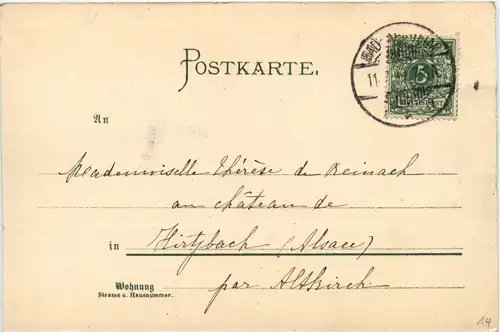 POSTKARTE.
5
11
An
Mademoiselle Thérèse de Reinach
au château de
in Hirtzbach (Alsace)
Wohnung
Strasse u. Hausnummer.
par Altkirch
14